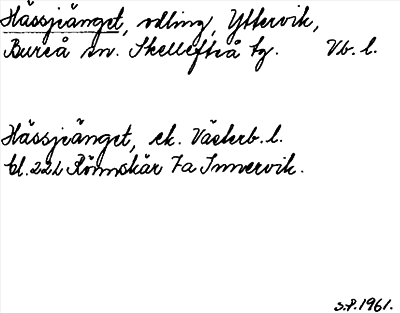 Hässjeänget, odling, Yttervik,
Bureå sn. Skellefteå tg. Vb. l.
Hässjeänget, ek. Västerb. l.
bl. 22L Rönnskär 7a Innervik.
S.P. 1961.